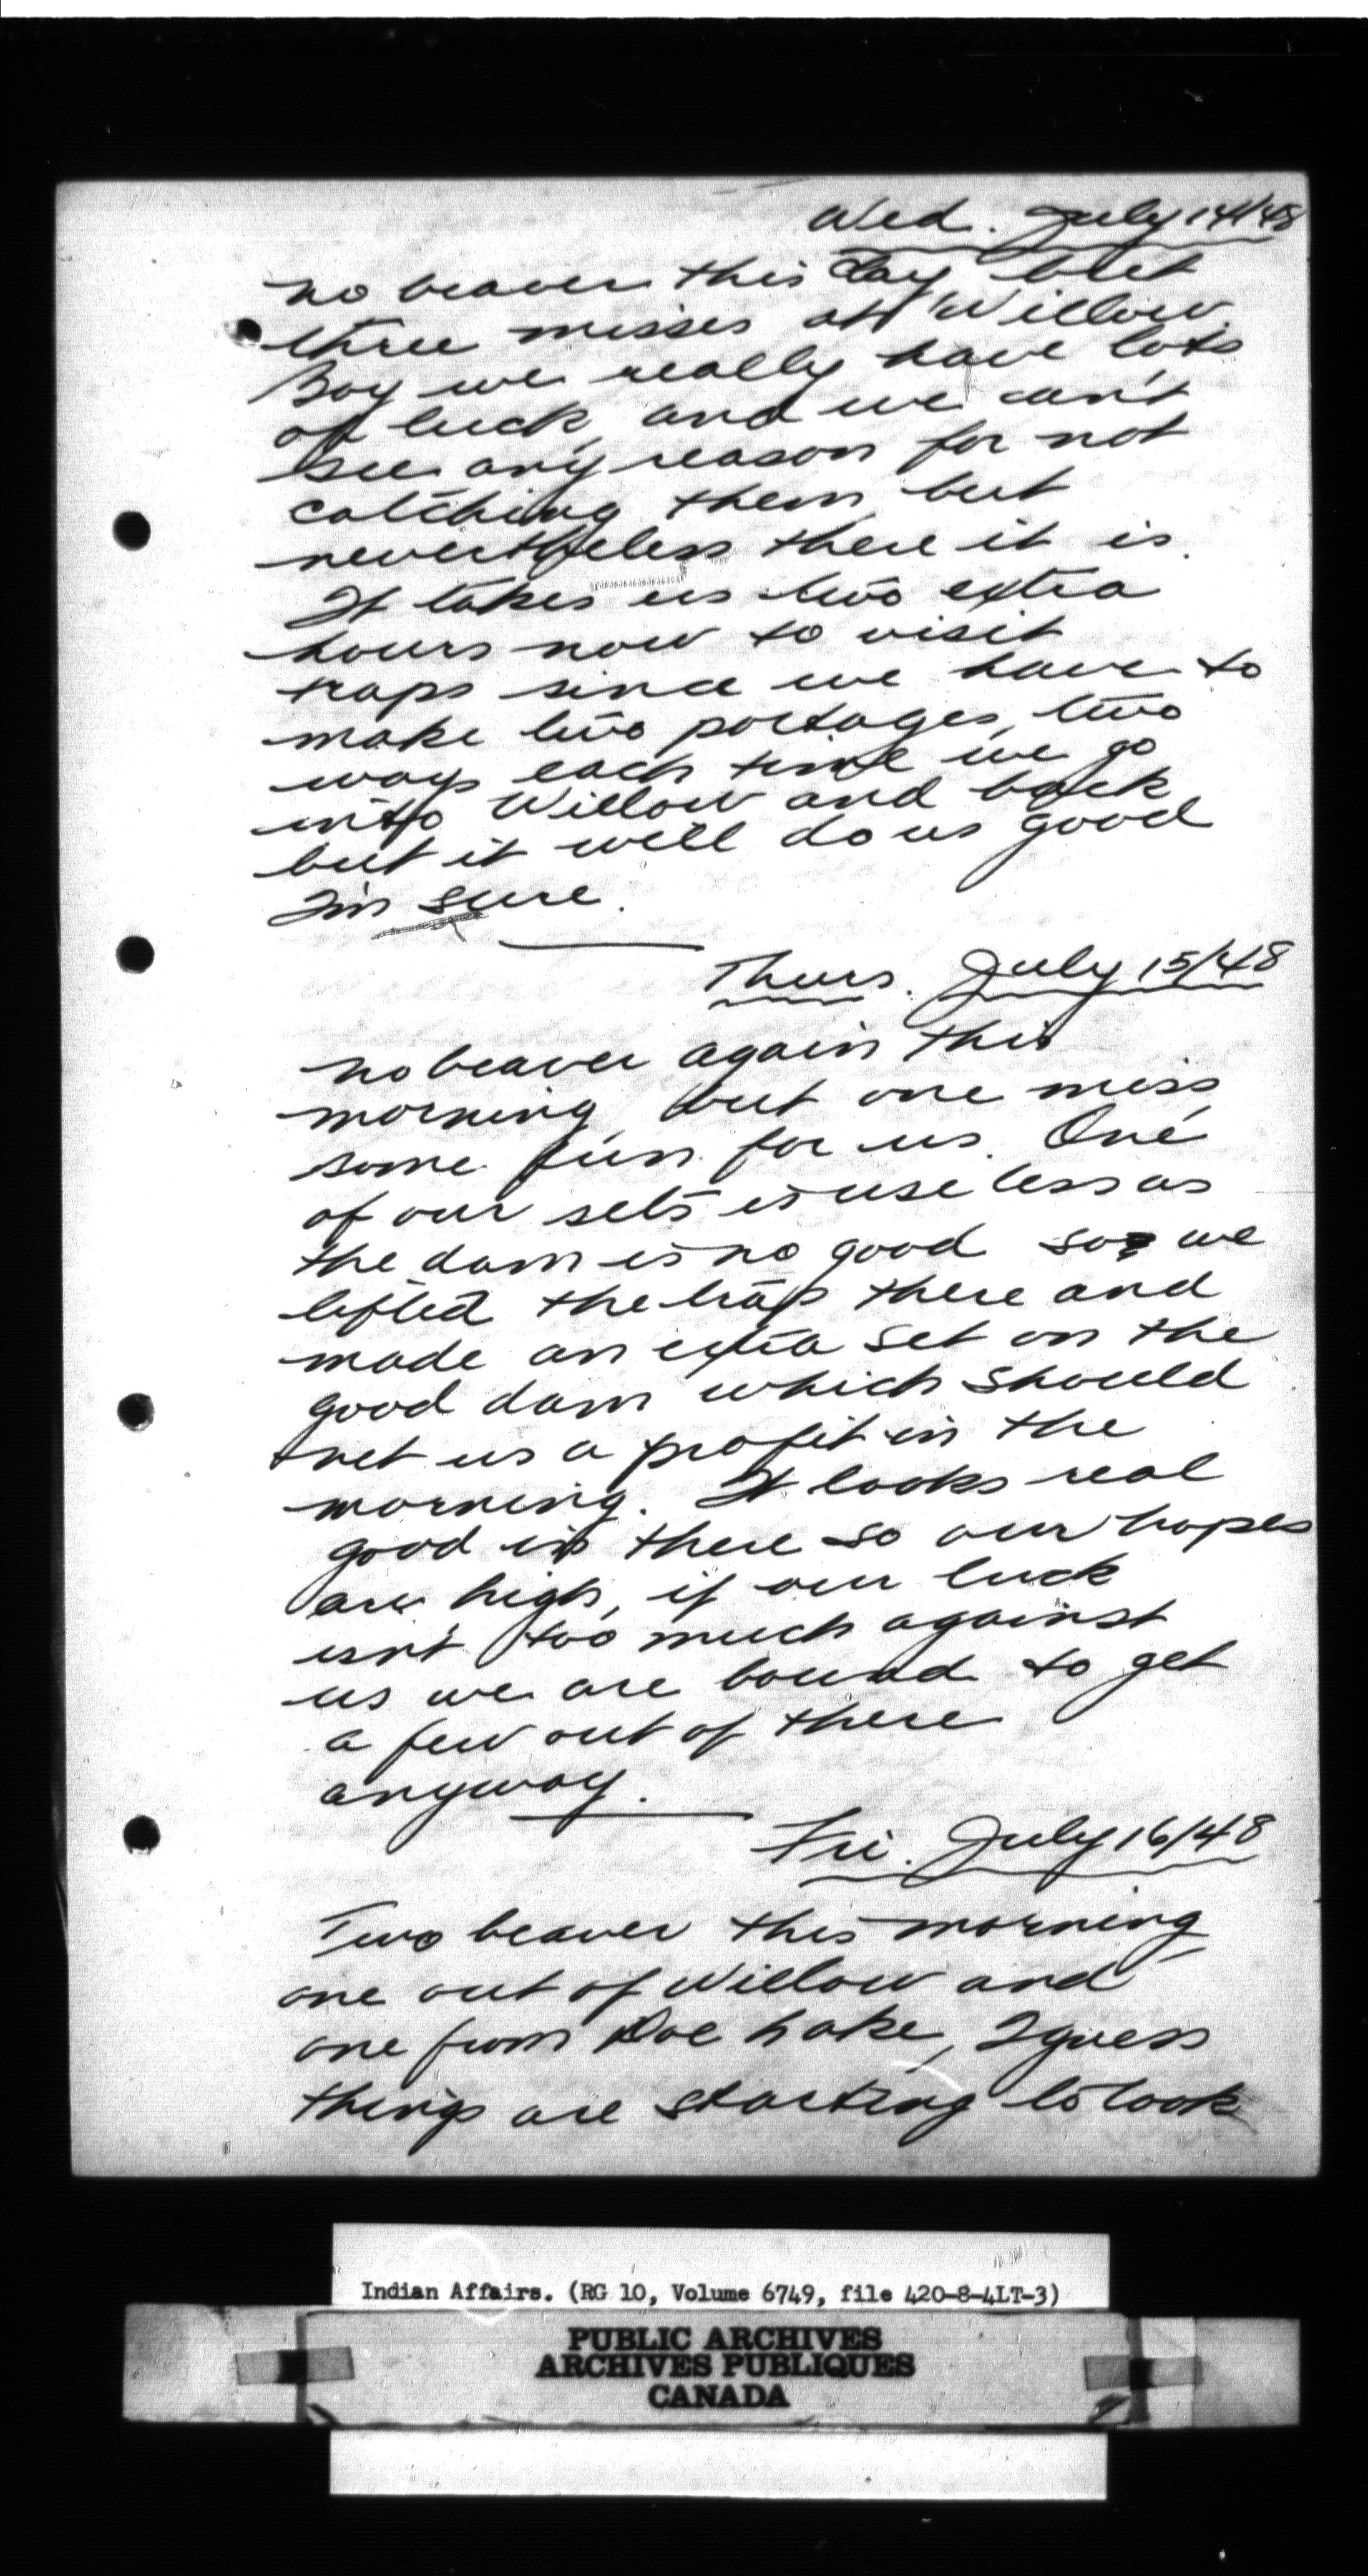 Wed. July 14/48
no beaver this day but
three misses at Willow.
Boy we really have lots
of luck, and we can't
see any reason for not
catching them, but
nevertheless there it is.
It takes us two extra
hours now to visit
traps since we have to
make two portages, two
ways each time we go
into Willow and back,
but it will do us good
I'm sure.
Thurs. July 15/48
no beaver again this
morning, but one miss,
some fun for us. One
of our sets is useless as
the dam is no good so we
lifted the trap there and
made an extra set on the
good dam which should
net us a profit in the
morning. It looks real
good in there so our hopes
are high, if our luck
isn't too much against
us we are bound to get
a few out of there
anyway.
Fri. July 16/48
Two beaver this morning,
one out of Willow and
one from Doe Lake, I guess
things are starting to look
Indian Affairs. (RG 10, Volume 6749, file 420-8-4LT-3)
PUBLIC ARCHIVES
ARCHIVES PUBLIQUES
CANADA